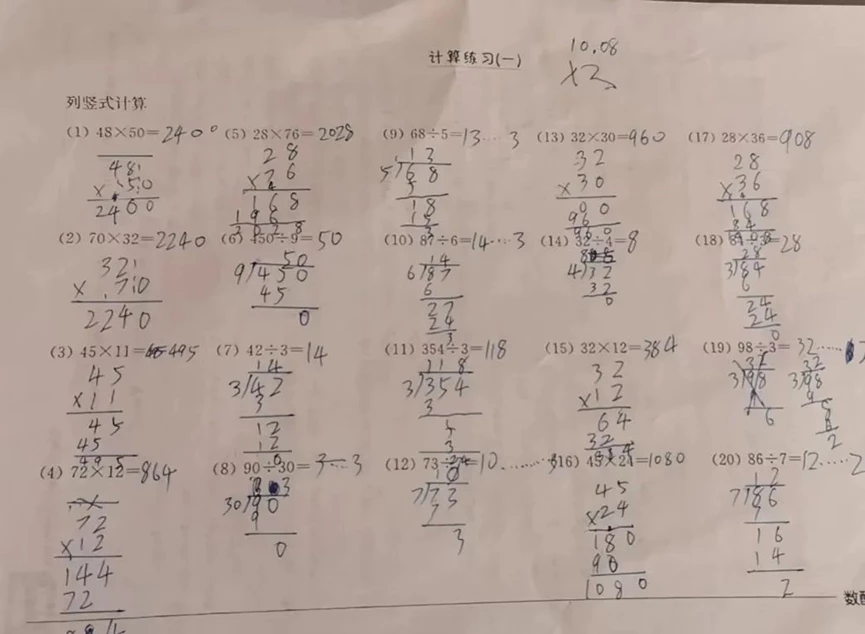 计算练习(一)
10.08
×2
列竖式计算
(1) 48×50=2400
(5) 28×76=2028
(9) 68÷5=13……3
(13) 32×30=960
(17) 28×36=908
48
×50
2400
28
×76
168
196
13
5 68
5
18
15
3
32
×30
00
96
960
28
×36
168
84
(2) 70×32=2240
(6) 450÷9=50
(10) 87÷6=14…3
(14) 32÷4=8
(18) 84÷3=28
32
×70
2240
50
9 450
45
0
14
6 87
6
27
24
3
4 32
32
0
28
3 84
6
24
24
0
(3) 45×11=495
(7) 42÷3=14
(11) 354÷3=118
(15) 32×12=384
(19) 98÷3=32……2
45
×11
45
45
495
14
3 42
3
12
12
0
118
3 354
3
5
3
24
32
×12
64
32
32
3 98
9
8
6
2
(4) 72×12=864
(8) 90÷30=3…3
(12) 73÷7=10……3
(16) 45×24=1080
(20) 86÷7=12……2
72
×12
144
72
864
3
30 90
9
0
10
7 73
7
3
45
×24
180
90
1080
12
7 86
7
16
14
2